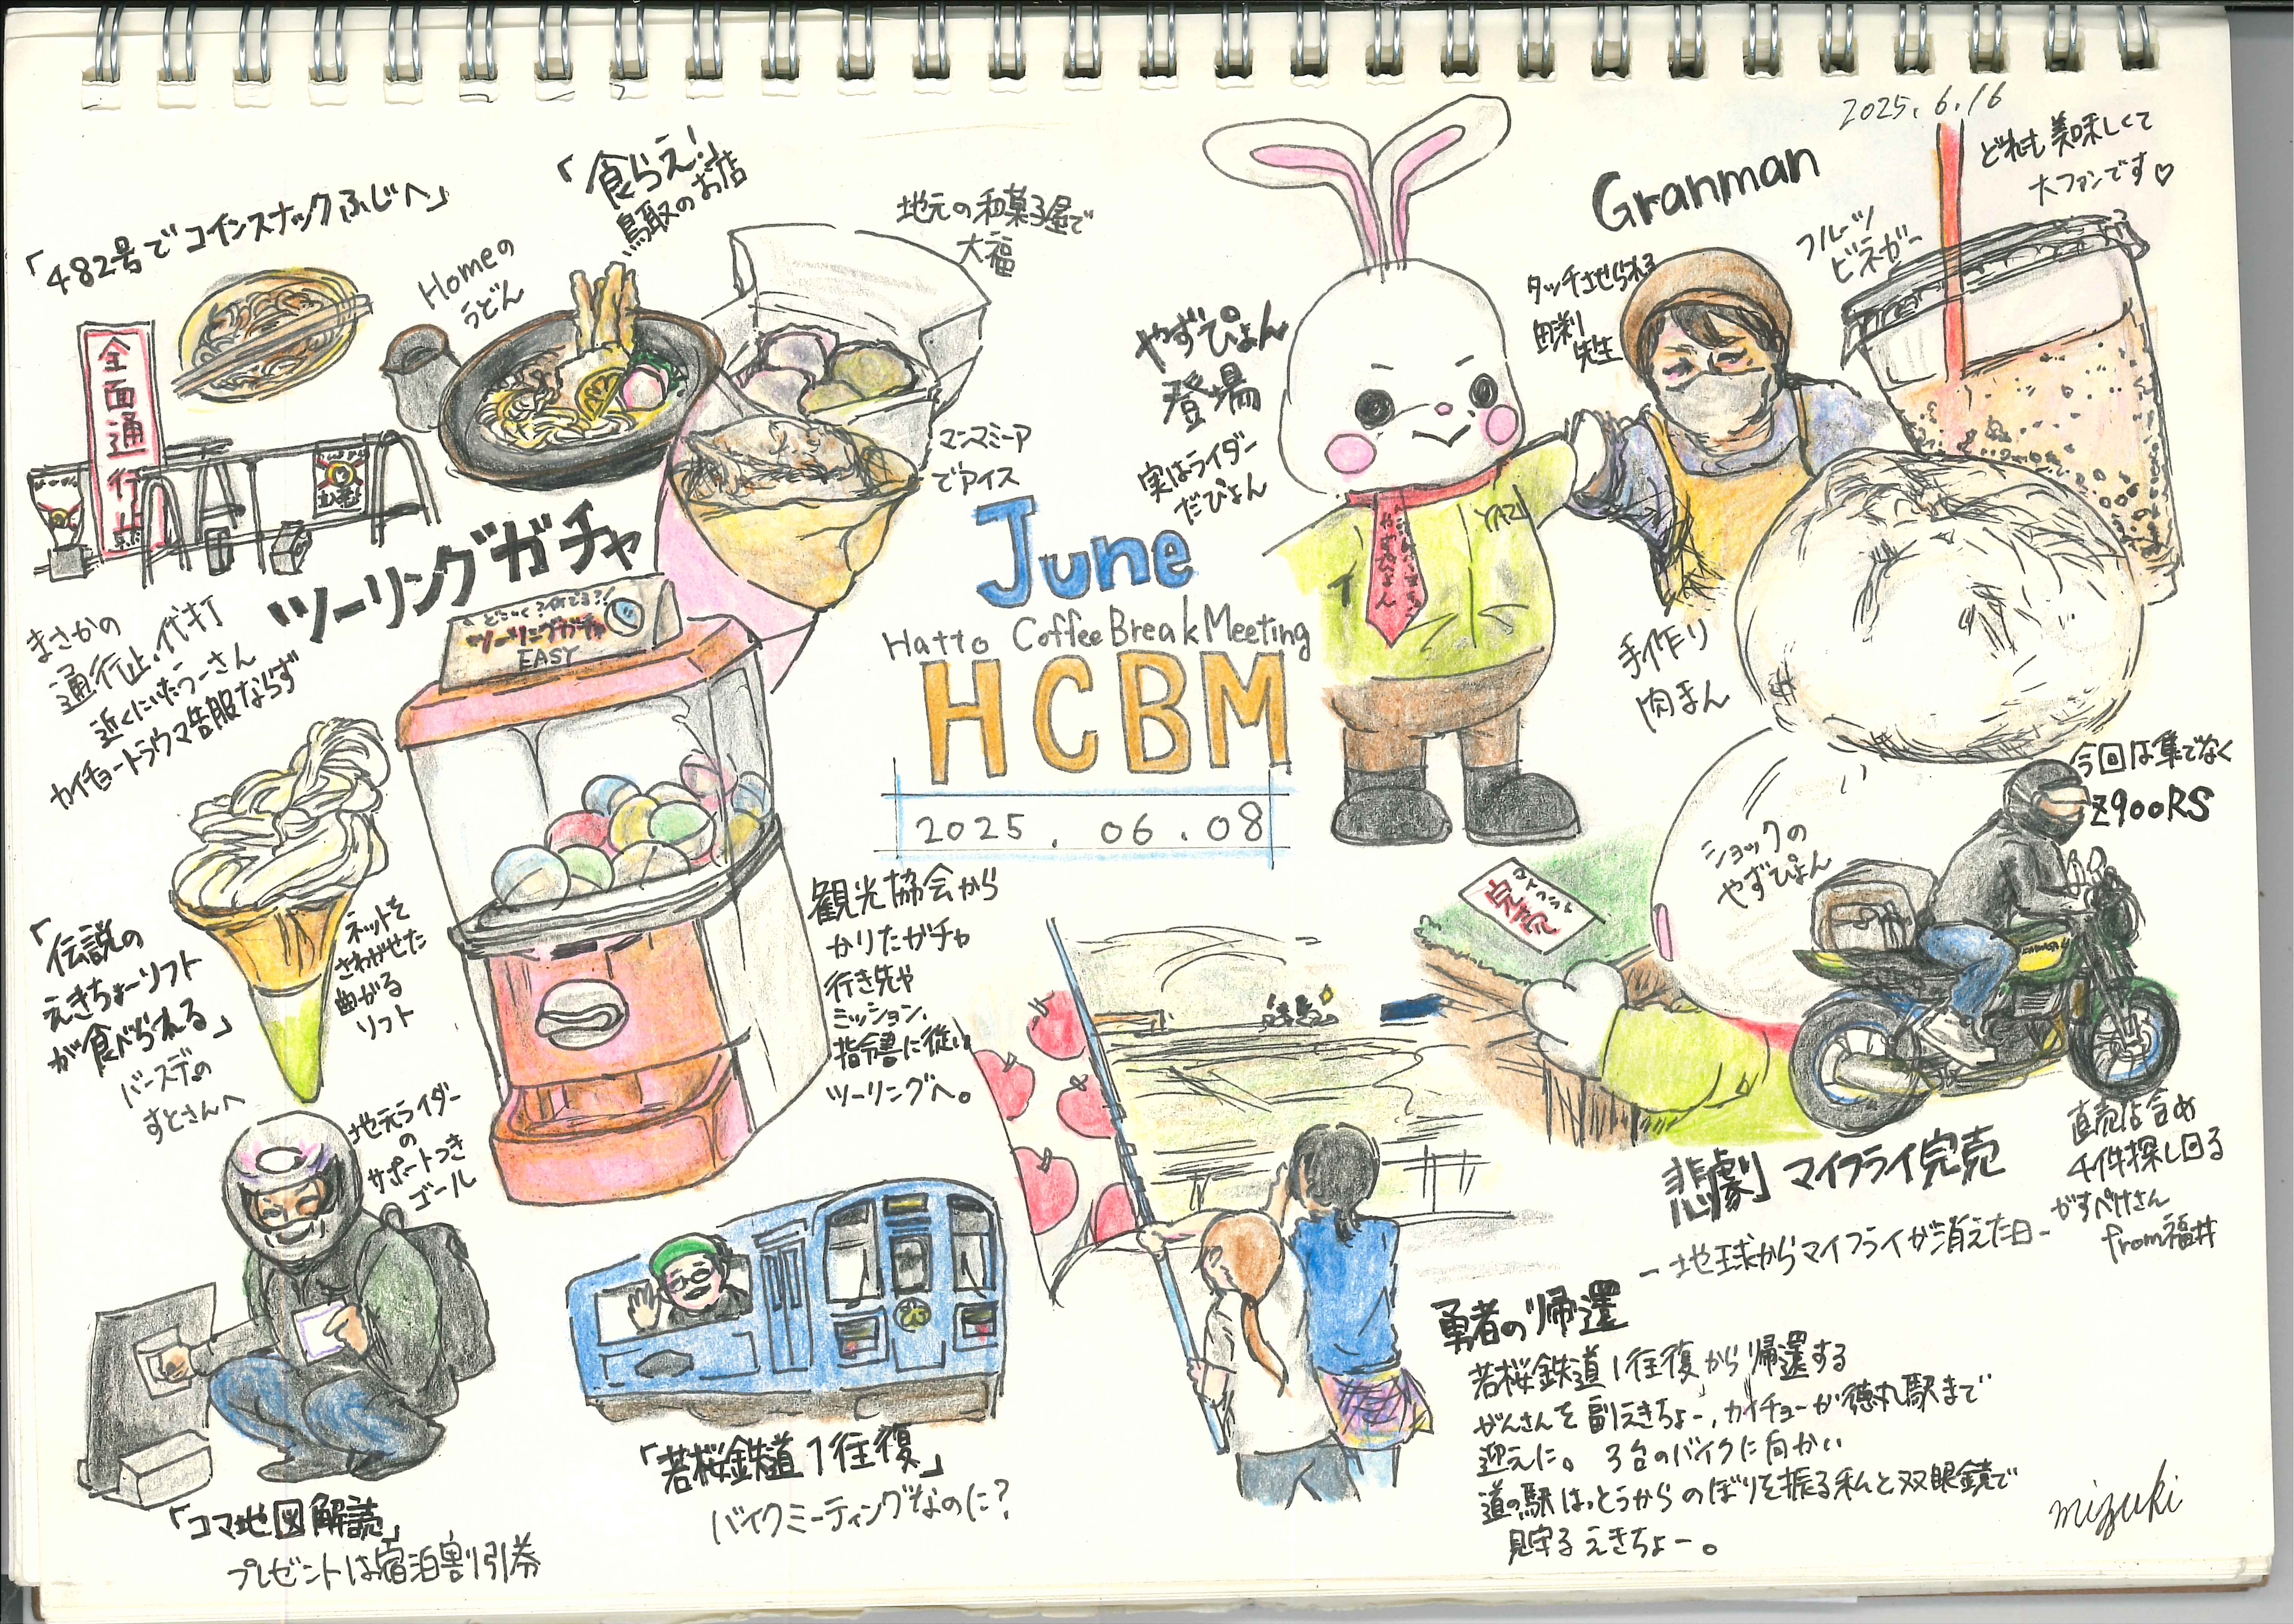 2025.6.16
「482号でコインスナックふじへ」
全面通行止
まさかの
通行止、代打
近くにいたつーさん
カイチョートラウマ告服ならず
「食らえ!」
鳥取のお店
Homeの
うどん
地元の和菓子屋で
大福
マンマミーア
でアイス
ツーリングガチャ
ツーリングガチャ
EASY
観光協会から
かりたガチャ
行き先や
ミッション、
指令書に従い
ツーリングへ。
「伝説の
えきちょーソフト
が食べられる」
バースデの
すとさんへ
ネットを
さわがせた
曲がる
ソフト
地元ライダー
の
サポートつき
ゴール
「コマ地図解読」
プレゼントは宿泊割引券
「若桜鉄道1往復」
バイクミーティングなのに?
June
Hatto Coffee Break Meeting
HCBM
2025.06.08
やずぴょん
登場
実はライダー
だぴょん
YAZU
やずぴょん
Granman
タッチさせられる
田渕
先生
フルーツ
ビネガー
どれも美味しくて
大ファンです♡
手作り
肉まん
ショックの
やずぴょん
マイフライ
完売
今回は隼でなく
Z900RS
悲劇 マイフライ完売
-地球からマイフライが消えた日-
直売店含め
4件探し回る
がすぺけさん
from福井
勇者の帰還
若桜鉄道1往復から帰還する
がんさんを副えきちょー、カイチョーが徳丸駅まで
迎えに。3台のバイクに向かい
道の駅はっとうからのぼりを振る私と双眼鏡で
見守るえきちょー。
mizuki